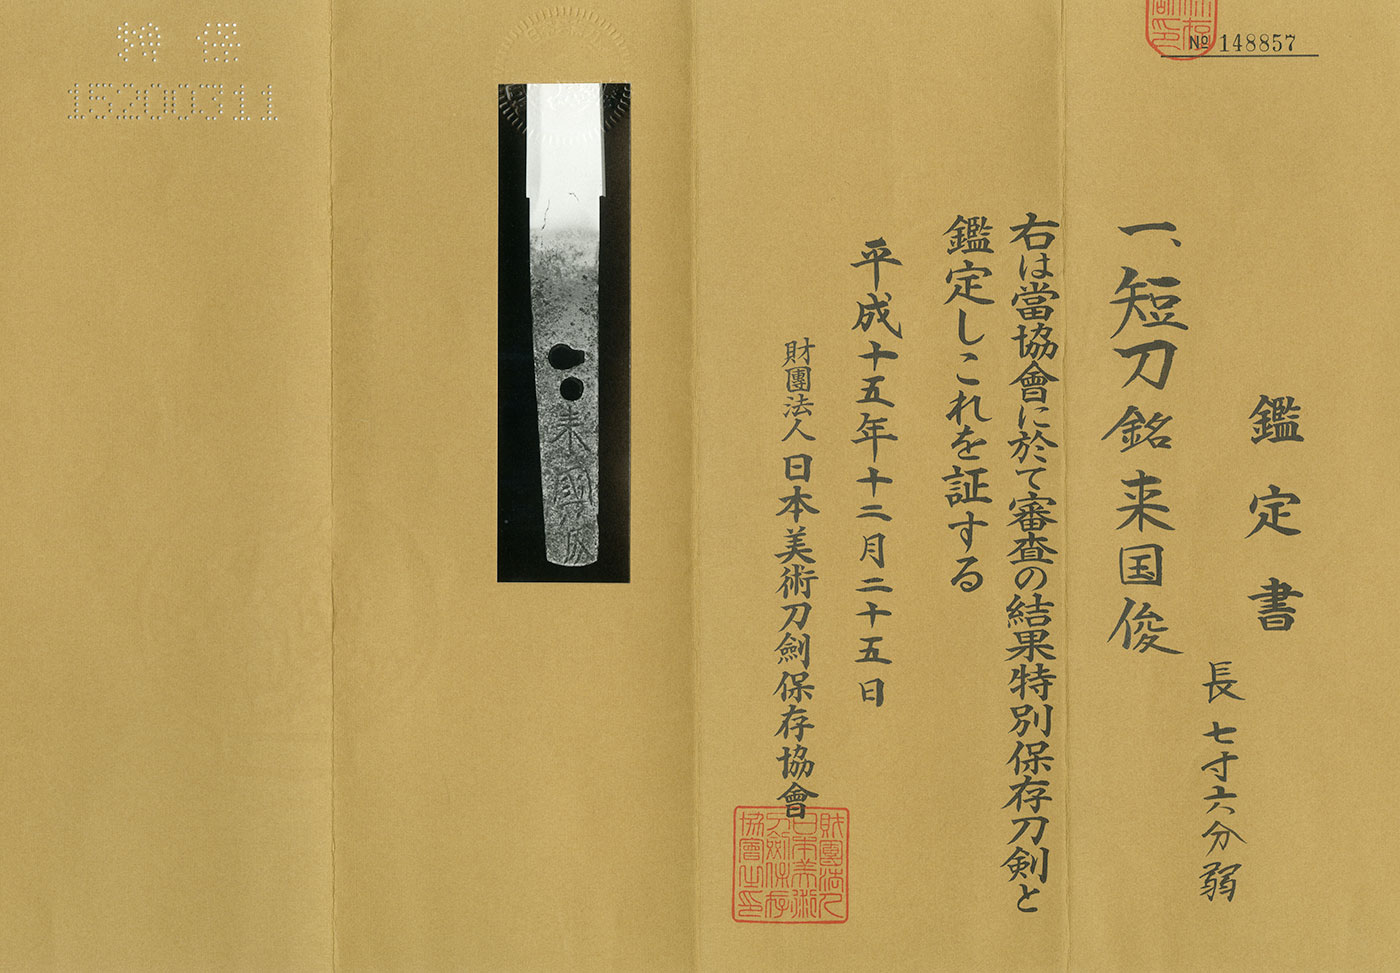 № 148857
鑑定書
一、短刀 銘 来国俊
長 七寸六分弱
右は當協會に於て審査の結果特別保存刀剣と
鑑定しこれを証する
平成十五年十二月二十五日
財團法人日本美術刀劍保存協會
財團法人
日本美術
刀劍保存
協會之印
特保
15200311
来國俊